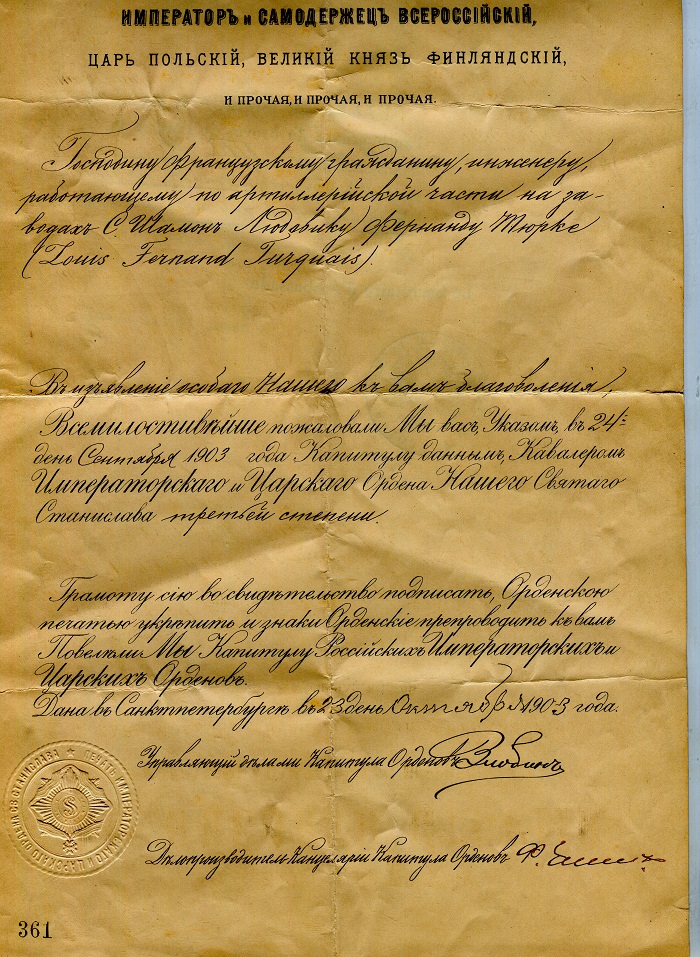 ИМПЕРАТОРЪ и САМОДЕРЖЕЦЪ ВСЕРОССІЙСКІЙ,
ЦАРЬ ПОЛЬСКІЙ, ВЕЛИКІЙ КНЯЗЬ ФИНЛЯНДСКІЙ,
И ПРОЧАЯ, И ПРОЧАЯ, И ПРОЧАЯ.
Господину Французскому гражданину, инженеру,
работающему по артиллерійской части на за-
водахъ С. Шамонъ Людовику Фернанду Тюрке
(Louis Fernand Turquais).
Въ изъявленіе особаго Нашего къ вамъ благоволенія,
Всемилостивѣйше пожаловали Мы васъ, Указомъ, въ 24-
день Сентября 1903 года Капитулу даннымъ, Кавалеромъ
Императорскаго и Царскаго Ордена Нашего Святаго
Станислава третьей степени.
Грамоту сію во свидѣтельство подписать, Орденскою
печатью укрѣпить и знаки Орденскіе препроводить къ вамъ
Повелѣли Мы Капитулу Россійскихъ Императорскихъ и
Царскихъ Орденовъ.
Дана въ Санктпетербургѣ въ 23 день Октября 1903 года.
Управляющій дѣлами Капитула Орденовъ
Дѣлопроизводитель Канцеляріи Капитула Орденовъ
ПЕЧАТЬ ИМПЕРАТОРСКАГО И ЦАРСКАГО ОРДЕНА СВ СТАНИСЛАВА
361